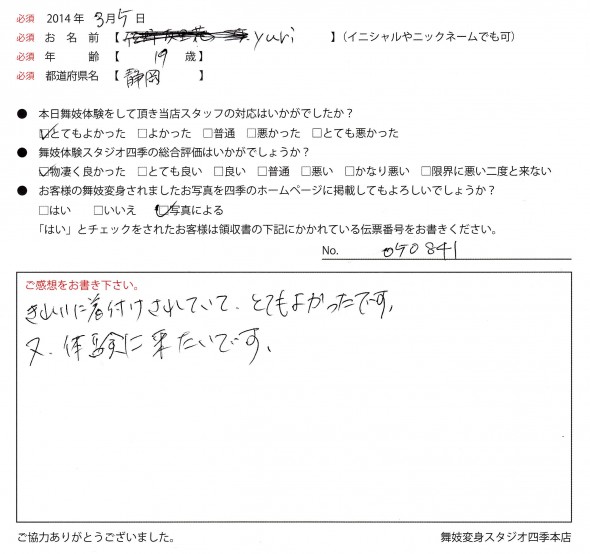 必須 2014年 3月5日
必須 お名前【 yuri 】(イニシャルやニックネームでも可)
必須 年齢【 19歳】
必須 都道府県名【 静岡 】
● 本日舞妓体験をして頂き当店スタッフの対応はいかがでしたか？
☑とてもよかった □よかった □普通 □悪かった □とても悪かった
● 舞妓体験スタジオ四季の総合評価はいかがでしょうか？
☑物凄く良かった □とても良い □良い □普通 □悪い □かなり悪い □限界に悪い二度と来ない
● お客様の舞妓変身されましたお写真を四季のホームページに掲載してもよろしいでしょうか？
□はい □いいえ ☑写真による
「はい」とチェックをされたお客様は領収書の下記にかかれている伝票番号をお書きください。
No. 050841
ご感想をお書き下さい。
きれいに着付けされていて、とてもよかったです。
又、体験に来たいです。
ご協力ありがとうございました。 舞妓変身スタジオ四季本店